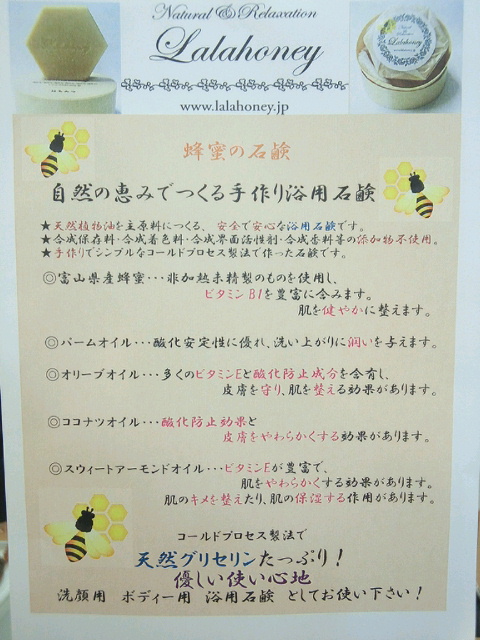 Natural & Relaxation
Lalahoney
www.lalahoney.jp
Lalahoney
蜂蜜の石鹸
自然の恵みでつくる手作り浴用石鹸
★天然植物油を主原料につくる、安全で安心な浴用石鹸です。
★合成保存料・合成着色料・合成界面活性剤・合成香料等の添加物不使用。
★手作りでシンプルなコールドプロセス製法で作った石鹸です。
◎富山県産蜂蜜・・・非加熱未精製のものを使用し、
ビタミンB1を豊富に含みます。
肌を健やかに整えます。
◎パームオイル・・・酸化安定性に優れ、洗い上がりに潤いを与えます。
◎オリーブオイル・・・多くのビタミンEと酸化防止成分を含有し、
皮膚を守り、肌を整える効果があります。
◎ココナツオイル・・・酸化防止効果と
皮膚をやわらかくする効果があります。
◎スウィートアーモンドオイル・・・ビタミンEが豊富で、
肌をやわらかくする効果があります。
肌のキメを整えたり、肌の保湿する作用があります。
コールドプロセス製法で
天然グリセリンたっぷり！
優しい使い心地
洗顔用 ボディー用 浴用石鹸 としてお使い下さい！